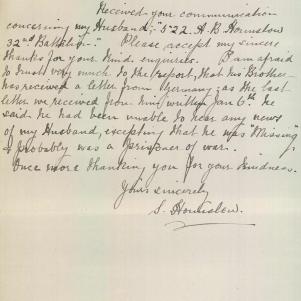 Received your communication
concerning my Husband, "522 H.B. Hounslow
32nd Battalion." Please accept my sincere
thanks for your kind enquiries. I am afraid
to trust very much to the report, that his Brother
has received a letter from Germany, as the last
letter we received from him written Jan 6th he
said he had been unable to hear any news
of my Husband, excepting that he was "Missing"
& probably was a prisoner of war.
Once more thanking you for your kindness.
Yours sincerely
S. Hounslow.